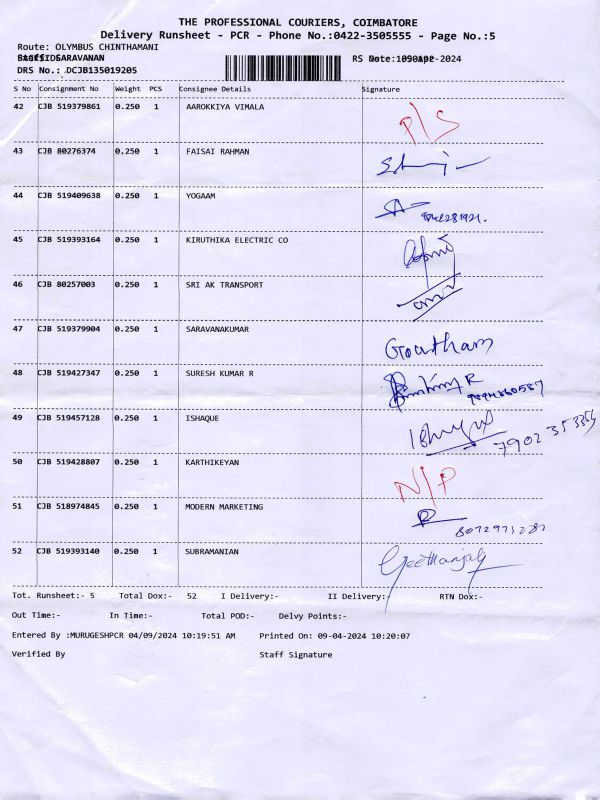 THE PROFESSIONAL COURIERS, COIMBATORE
Delivery Runsheet - PCR - Phone No.:0422-3505555 - Page No.:5
Route: OLYMBUS CHINTHAMANI
SARAVANAN
RS No.: -2024
DRS No.: DCJB135019205
S No Consignment No Weight PCS Consignee Details Signature
42 CJB 519379861 0.250 1 AAROKKIYA VIMALA P/S
43 CJB 80276374 0.250 1 FAISAI RAHMAN
44 CJB 519409638 0.250 1 YOGAAM
45 CJB 519393164 0.250 1 KIRUTHIKA ELECTRIC CO
46 CJB 80257003 0.250 1 SRI AK TRANSPORT
47 CJB 519379904 0.250 1 SARAVANAKUMAR Goutham
48 CJB 519427347 0.250 1 SURESH KUMAR R
49 CJB 519457128 0.250 1 ISHAQUE
50 CJB 519428807 0.250 1 KARTHIKEYAN N/P
51 CJB 518974845 0.250 1 MODERN MARKETING
52 CJB 519393140 0.250 1 SUBRAMANIAN Geethanjali
Tot. Runsheet:- 5 Total Dox:- 52 I Delivery:- II Delivery:- RTN Dox:-
Out Time:- In Time:- Total POD:- Delvy Points:-
Entered By :MURUGESHPCR 04/09/2024 10:19:51 AM Printed On: 09-04-2024 10:20:07
Verified By Staff Signature